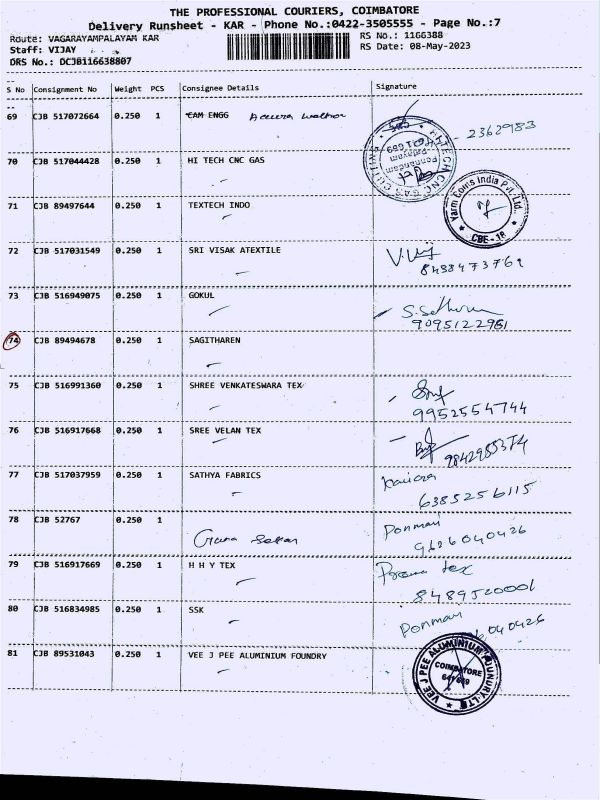 THE PROFESSIONAL COURIERS, COIMBATORE
Delivery Runsheet - KAR - Phone No.:0422-3505555 - Page No.:7
Route: VAGARAYAMPALAYAM KAR
RS No.: 1166388
Staff: VIJAY
RS Date: 08-May-2023
DRS No.: DCJB116638807
S No Consignment No Weight PCS Consignee Details Signature
69 CJB 517072664 0.250 1 CAM ENGG
2362983
70 CJB 517044428 0.250 1 HI TECH CNC GAS
71 CJB 89497644 0.250 1 TEXTECH INDO
Yarm Coms India Pvt. Ltd.,
CBE - 18
72 CJB 517031549 0.250 1 SRI VISAK ATEXTILE V.Vij
8438473769
73 CJB 516949075 0.250 1 GOKUL
9095122961
74 CJB 89494678 0.250 1 SAGITHAREN
75 CJB 516991360 0.250 1 SHREE VENKATESWARA TEX
9952554744
76 CJB 516917668 0.250 1 SREE VELAN TEX
77 CJB 517037959 0.250 1 SATHYA FABRICS
6385256115
78 CJB 52767 0.250 1
9626040426
79 CJB 516917669 0.250 1 H H Y TEX
8489520001
80 CJB 516834985 0.250 1 SSK
040426
81 CJB 89531043 0.250 1 VEE J PEE ALUMINIUM FOUNDRY
VEE J PEE ALUMINIUM FOUNDRY
COIMBATORE